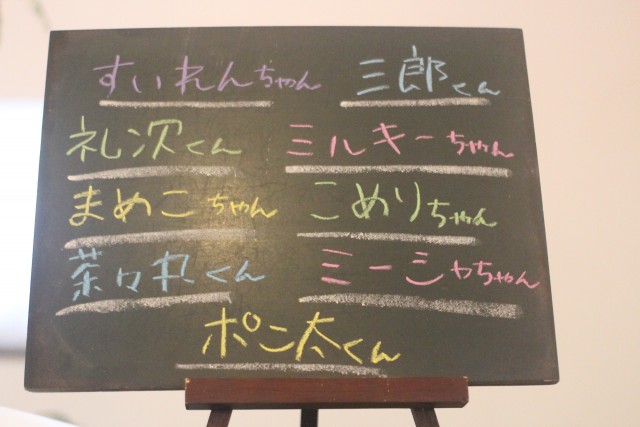 すいれんちゃん 三郎くん
礼次くん ミルキーちゃん
まめこちゃん こめりちゃん
茶々丸くん ミーシャちゃん
ポン太くん